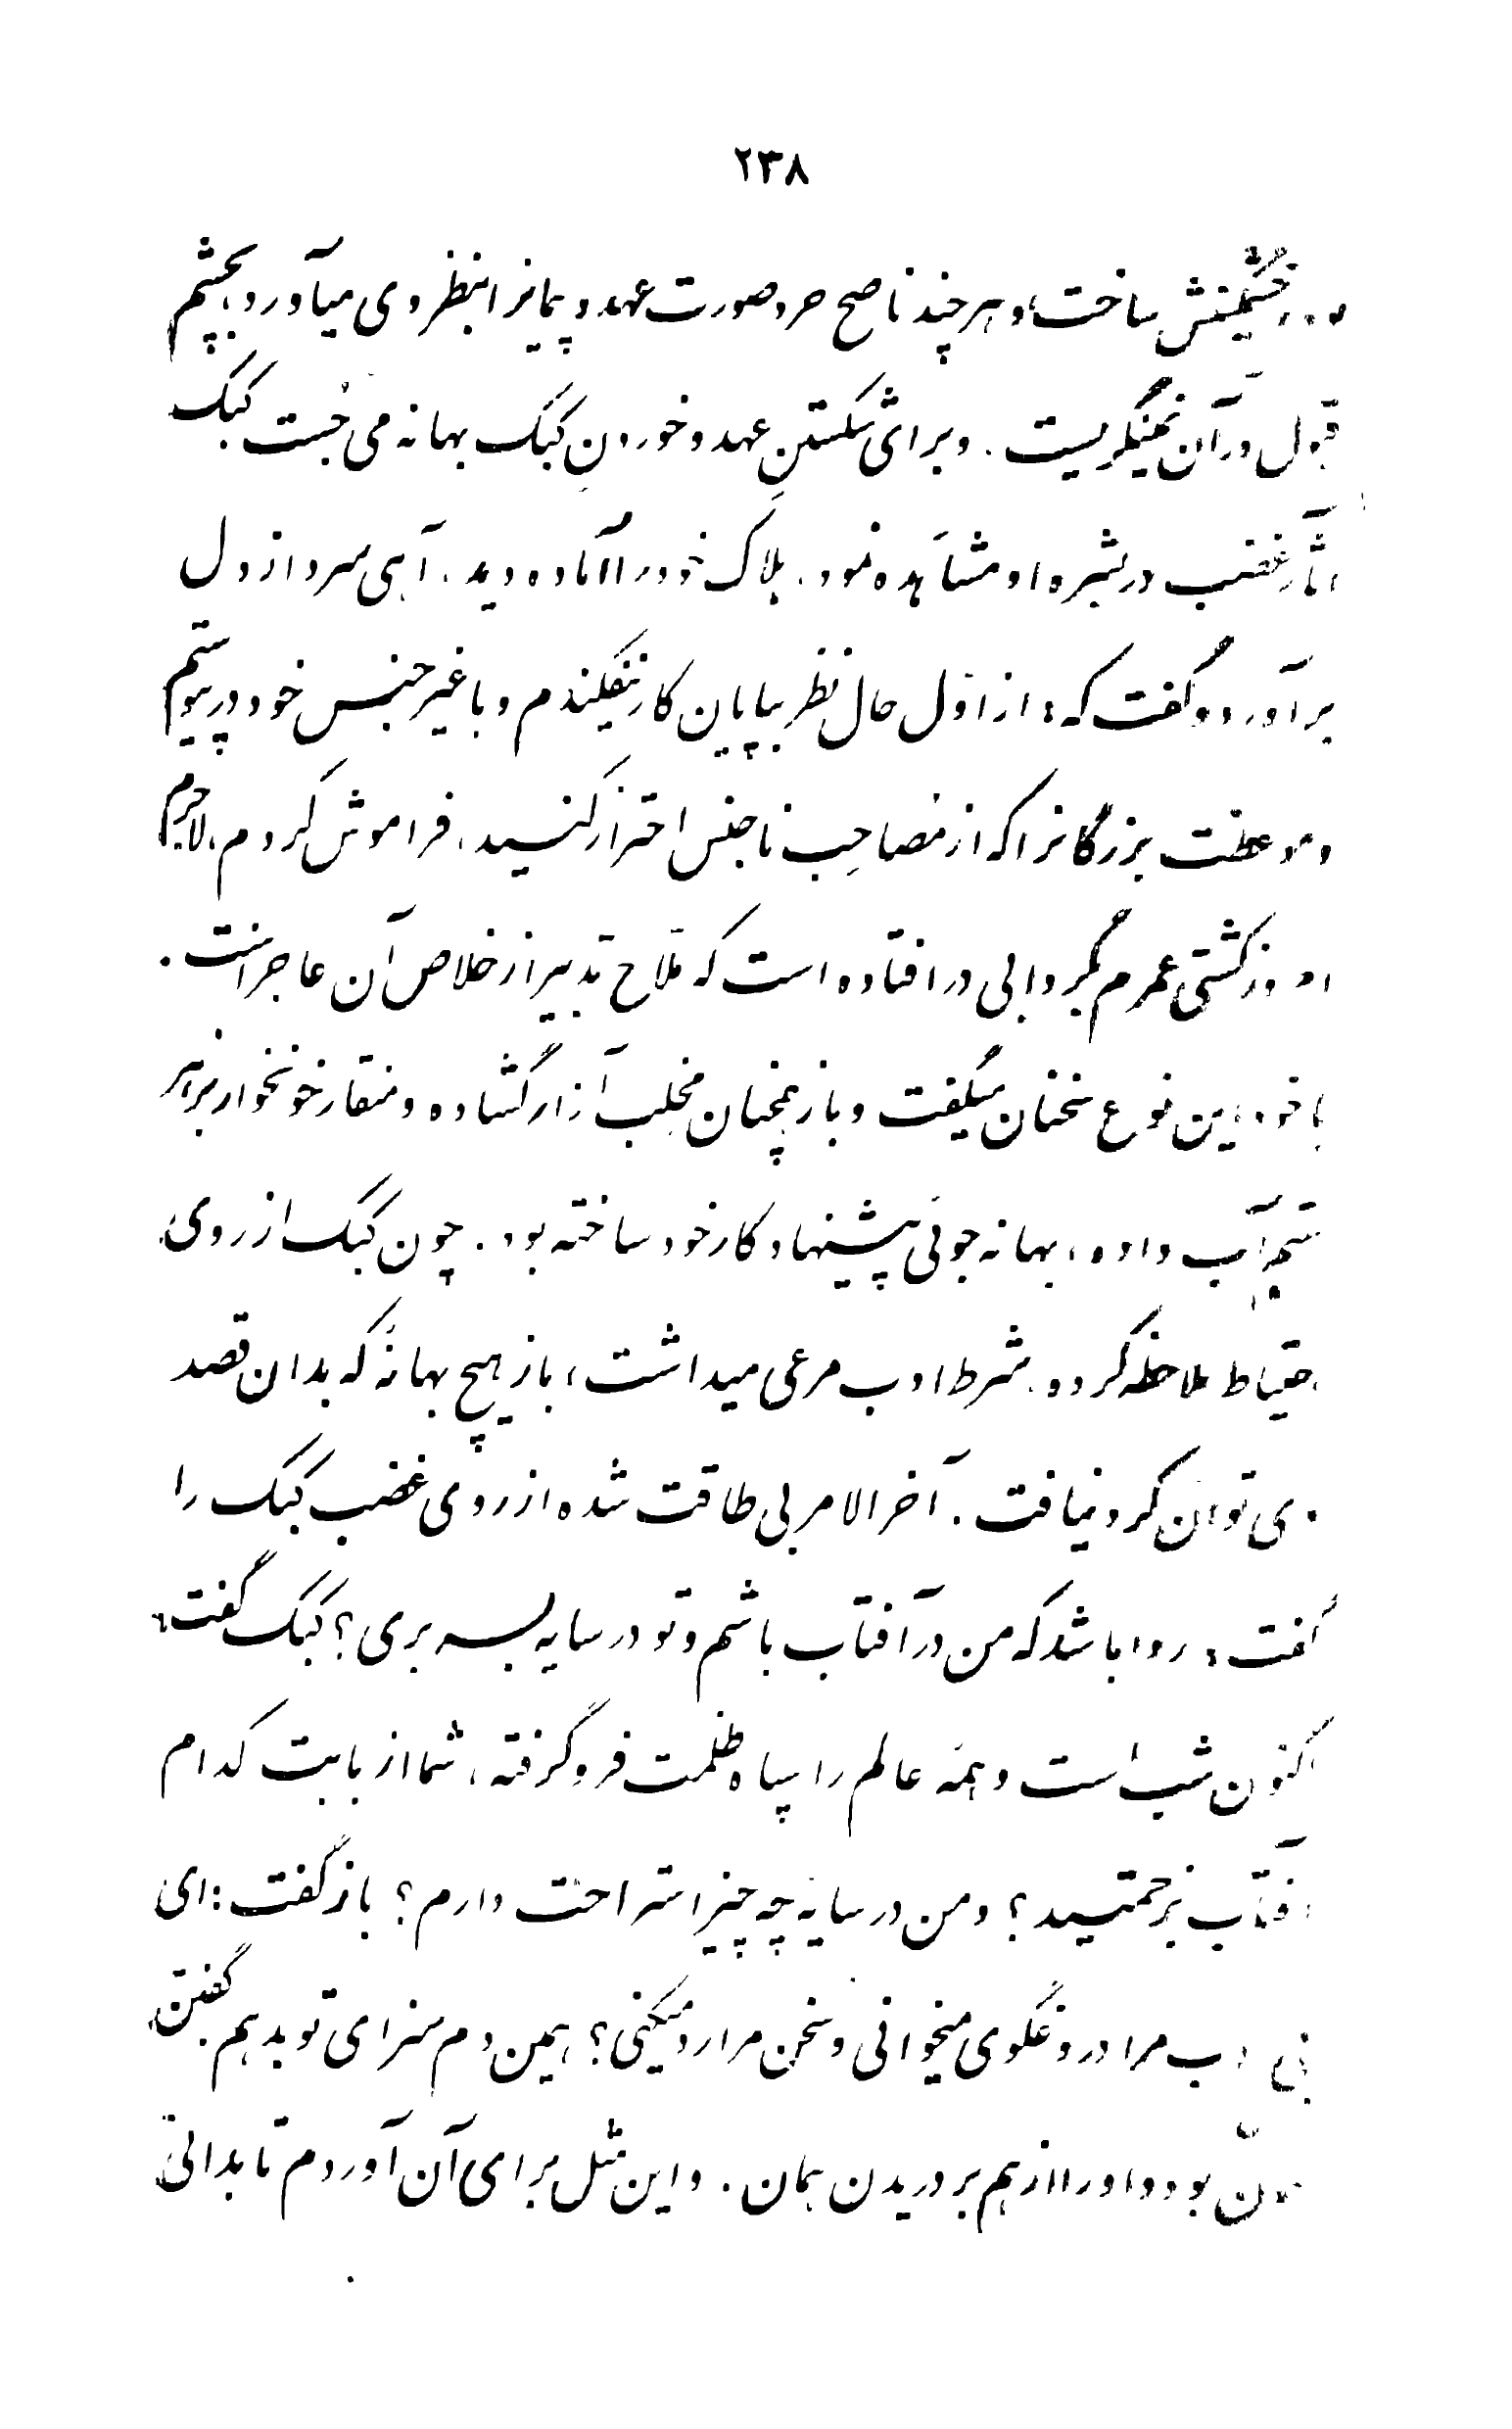 ۲۳۸
خشمگینش ساخت، و هر چند ناصح خرد صورت عهد و پیمانرا بنظر وی میآورد، بچشم
قبول در آن نمینگریست. و برای شکستن عهد و خوردن کبک بهانه می جُست کبک
آثار غضب در بشره او مشاهده نمود. هلاک خود را آماده دید. آهی سرد از دل
برآورد و گفت که: از اوّل حال نظر بپایان کار نیفکندم و با غیر جنس خود در پیوستم
و موعظت بزرگانرا که از مصاحِب ناجنس احتراز کنید، فراموش کردم، لاجرم
امروز کشتی عمرم بگردابی در افتاده است که ملّاح تدبیر از خلاص آن عاجز است.
با خود این نوع سخنان میگفت و باز همچنان مخلب آزار گشاده و منقار خونخوار بزهر
ستم آب داده، بهانه جوئی پیشنهاد کار خود ساخته بود. چون کبک از روی
احتیاط ملاحظه کرده، شرط ادب مرعی میداشت، باز هیچ بهانهٔ که بدان قصد
وی توان کرد نیافت. آخر الامر بی طاقت شده از روی غضب کبک را
گفت: روا باشد که من در آفتاب باشم و تو در سایه بسر بری؟ کبک گفت:
اکنون شب است و همهٔ عالم را سپاه ظلمت فرو گرفته، شما از بابت کدام
آفتاب بزحمتید؟ و من در سایهٔ چه چیز استراحت دارم؟ باز گفت: ای
بی ادب مرا دروغگوی میخوانی و سخن مرا رد میکنی؟ همین دم سزای تو بدهم. گفتن
همان بود و او را از هم بر دریدن همان. و این مثل برای آن آوردم تا بدانی